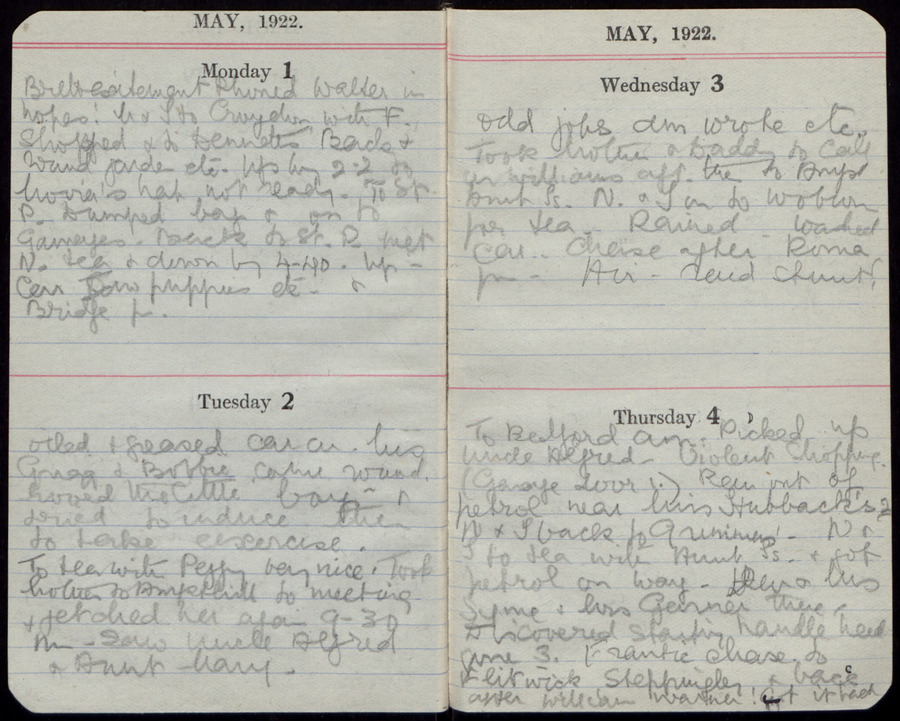 MAY, 1922.
Monday 1
excitement Phoned Walter in
hopes! & I to Croydon with F.
Shopped & to Dennetts Back &
garden etc. Ups by 2-2 to
hat not ready. To St.
P. Dumped bag & on to
Gamages. Back to St. P. met
N. tea & down by 4-40. Up -
Carr Saw puppies etc. &
Bridge p.
Tuesday 2
oiled & greased car a.m. Miss
Gregg & Bobbie came round.
the little boy &
tried to induce them
to take exercise.
To tea with Peggy very nice. Took
Mother to Ampthill to meeting
& fetched her again 9-30
m - Saw Uncle Alfred
& Aunt Mary.
MAY, 1922.
Wednesday 3
Odd jobs am wrote etc.
Took Mother & Daddy to call
on Williams aft. to
Aunt Is. N. & I on to Woburn
for tea. Rained - washed
car. Chaise after Roma
pm - Air - raid stunt!
Thursday 4
To Bedford am. Picked up
Uncle Alfred - Violent Shopping.
(Garage door!) Ran out of
petrol near Miss Hubback's
N & I back to - N &
I to tea with Aunt Is. & got
petrol on way - Miss
Syme & Miss there.
Discovered starting handle
gone 3. Frantic chase to
Flitwick Steppingley & back
after William Warner! Got it back